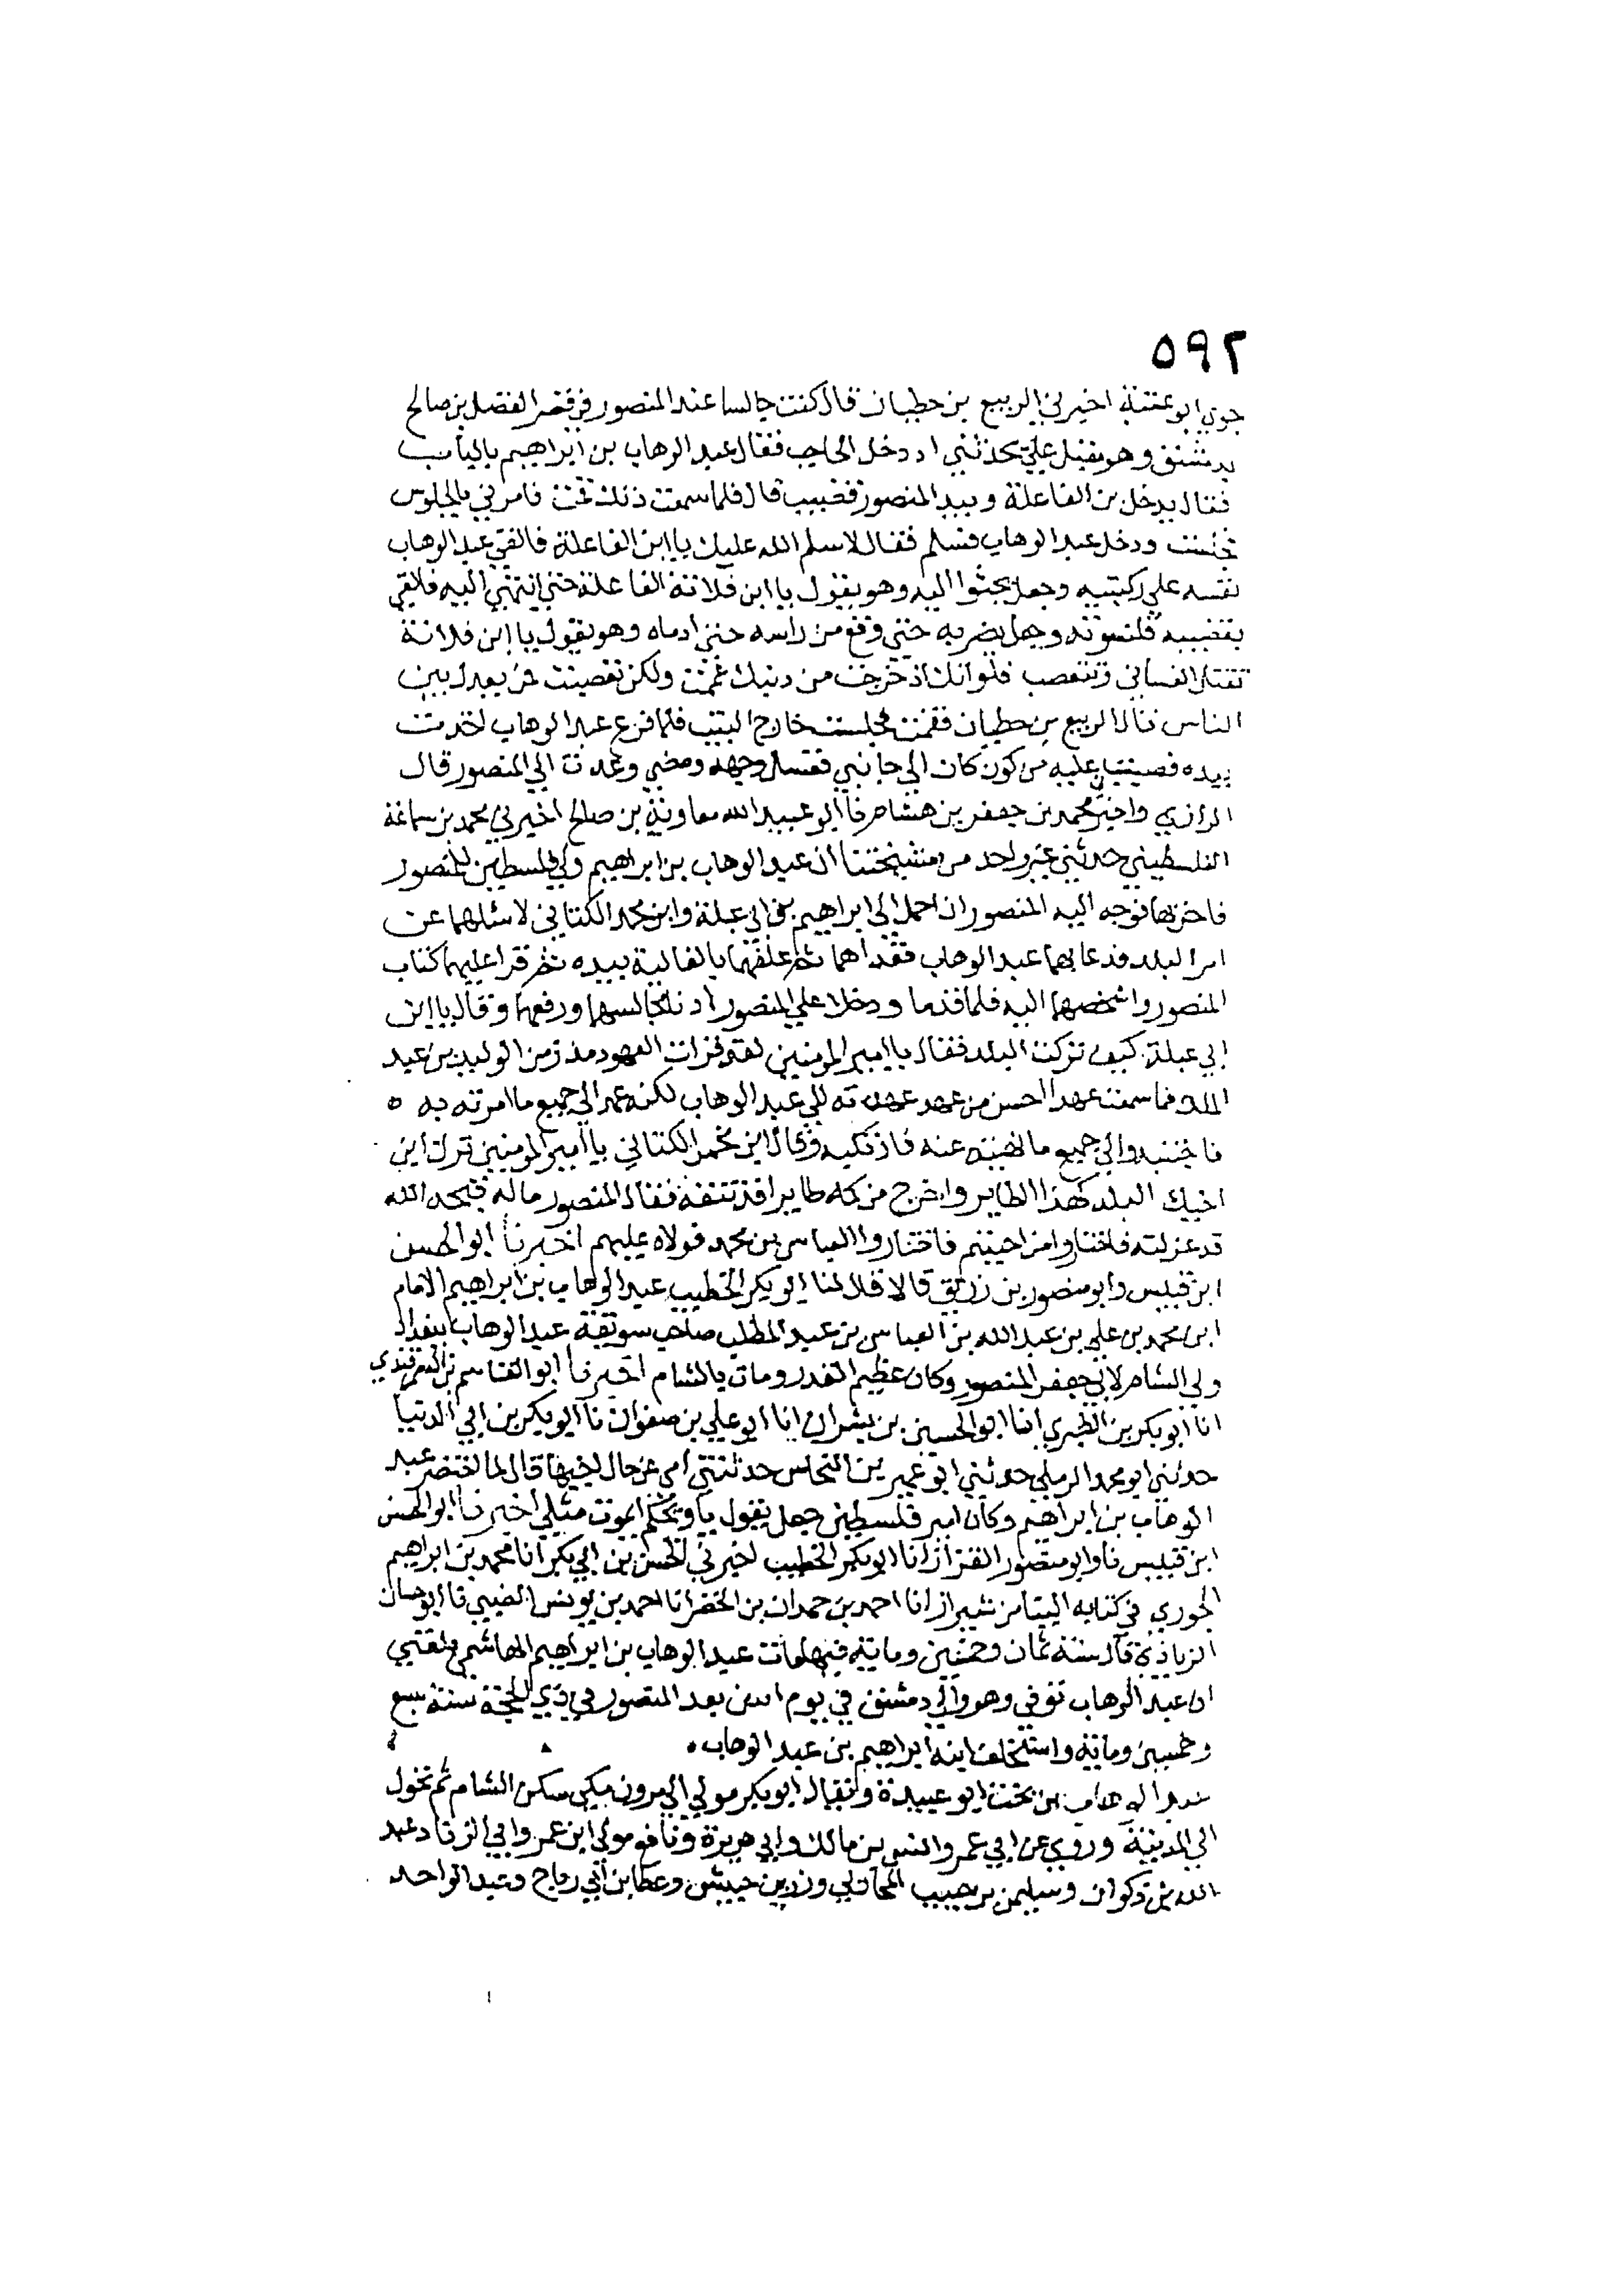 ٥٩٢
جوى ابو عتبة اخبرني الربيع بن حطيان قال كنت جالسا عند المنصور في قصر الفضل بن صالح
بدمشق وهو يقبل علي يحدثني اذ دخل الحاجب فقال عبد الوهاب بن ابراهيم بالباب
فقال يدخل بن الفاعلة وبيد المنصور قضيب قال فلما سمعت ذلك قمت فامرني بالجلوس
فجلست ودخل عبد الوهاب فسلم فقال لا سلم الله عليك يا ابن الفاعلة فالقى عبد الوهاب
نفسه على ركبتيه وجعل يجثوا اليه وهو يقول يا ابن فلانة الفاعلة حتى انتهى اليه فلقي
بقضيبه قلنسوته وجعل يضربه حتى وقع من راسه حتى ادماه وهو يقول يا ابن فلانة
تقتل الغساني وتتعصب فلو انك اذ خرجت من دنيك عممت ولكن تعصبت فمن يعدل بين
الناس قال الربيع بن حطيان فقمت فجلست خارج البيت فلما فرغ عبد الوهاب اخذت
بيده فصببت عليه من كوز كان الى جانبي فغسل وجهه ومضى وعدت الى المنصور قال
الرازي واخبرني محمد بن جعفر بن هشام نا ابو عبيد الله معاوية بن صالح اخبرني محمد بن سماعة
الفلسطيني حدثني غير واحد من مشيختنا ان عبد الوهاب بن ابراهيم ولي فلسطين للمنصور
فاخربها فوجه اليه المنصور ان احمل الي ابراهيم بن ابي عبلة وابن محمد الكتاني لاسئلهما عن
امر البلد فدعا بهما عبد الوهاب فغداهما ثم غلفهما بالغالية بيده ثم قرا عليهما كتاب
المنصور واشخصهما اليه فلما قدما ودخلا على المنصور ادنا مجالسهما ورفعهما وقال يا ابن
ابي عبلة كيف تركت البلد فقال يا امير المومنين لقد قرات العهود مذ زمن الوليد بن عبد
الملك فما سمعت عهدا احسن من عهد عهدته الى عبد الوهاب لكنه عمد الى جميع ما امرته به ه
فاجتنبه والى جميع ما نهيته عنه فارتكبه وقال ابن محمد الكتاني يا امير المومنين ترك ابن
اخيك البلد كهذا الطاير واخرج من كمه طايرا قد نتفه فقال المنصور ما له قبحه الله
قد عزلته فاختاروا من احببتم فاختاروا العباس بن محمد فولاه عليهم اخبرنا ابو الحسن
ابن قبيس وابو منصور بن زريق قالا قال لنا ابو بكر الخطيب عبد الوهاب بن ابراهيم الامام
ابن محمد بن علي بن عبد الله بن العباس بن عبد المطلب صاحب سويقة عبد الوهاب ببغداد
ولي الشام لابي جعفر المنصور وكان عظيم القدر ومات بالشام اخبرنا ابو القاسم بن السمرقندي
انا ابو بكر بن الطبري انا ابو الحسين بن بشران انا ابو علي بن صفوان نا ابو بكر بن ابي الدنيا
حدثني ابو محمد الرملي حدثني ابو عمير بن النحاس حدثتني امي عن خال لخيها قال لما احتضر عبد
الوهاب بن ابراهيم وكان امير فلسطين جعل يقول يا ويحكم ايموت مثلي اخبرنا ابو الحسن
ابن قبيس نا وابو منصور القزاز انا ابو بكر الخطيب اخبرني الحسن بن ابي بكر انا محمد بن ابراهيم
الجوري في كتابه الينا من شيراز انا احمد بن حمدان بن الخضر انا احمد بن يونس الضبي نا ابو حسان
الزيادي قال سنة ثمان وخمسين وماية فيها مات عبد الوهاب بن ابراهيم الهاشمي بلغني
ان عبد الوهاب توفي وهو والي دمشق في يوم بعد المنصور في ذي الحجة سنة سبع
وخمسين وماية واستخلف ابنه ابراهيم بن عبد الوهاب .
عبد الوهاب بن بخت ابو عبيدة ويقال ابو بكر مولى ال مرون مكي سكن الشام ثم تحول
الى المدينة وروى عن ابي عمر وانس بن مالك وابي هريرة ونافع مولى ابن عمر وابي الزناد عبد
الله بن ذكوان وسليمن بن حبيب المحاربي وزر بن حبيش وعطا بن ابي رباح وعبد الواحد